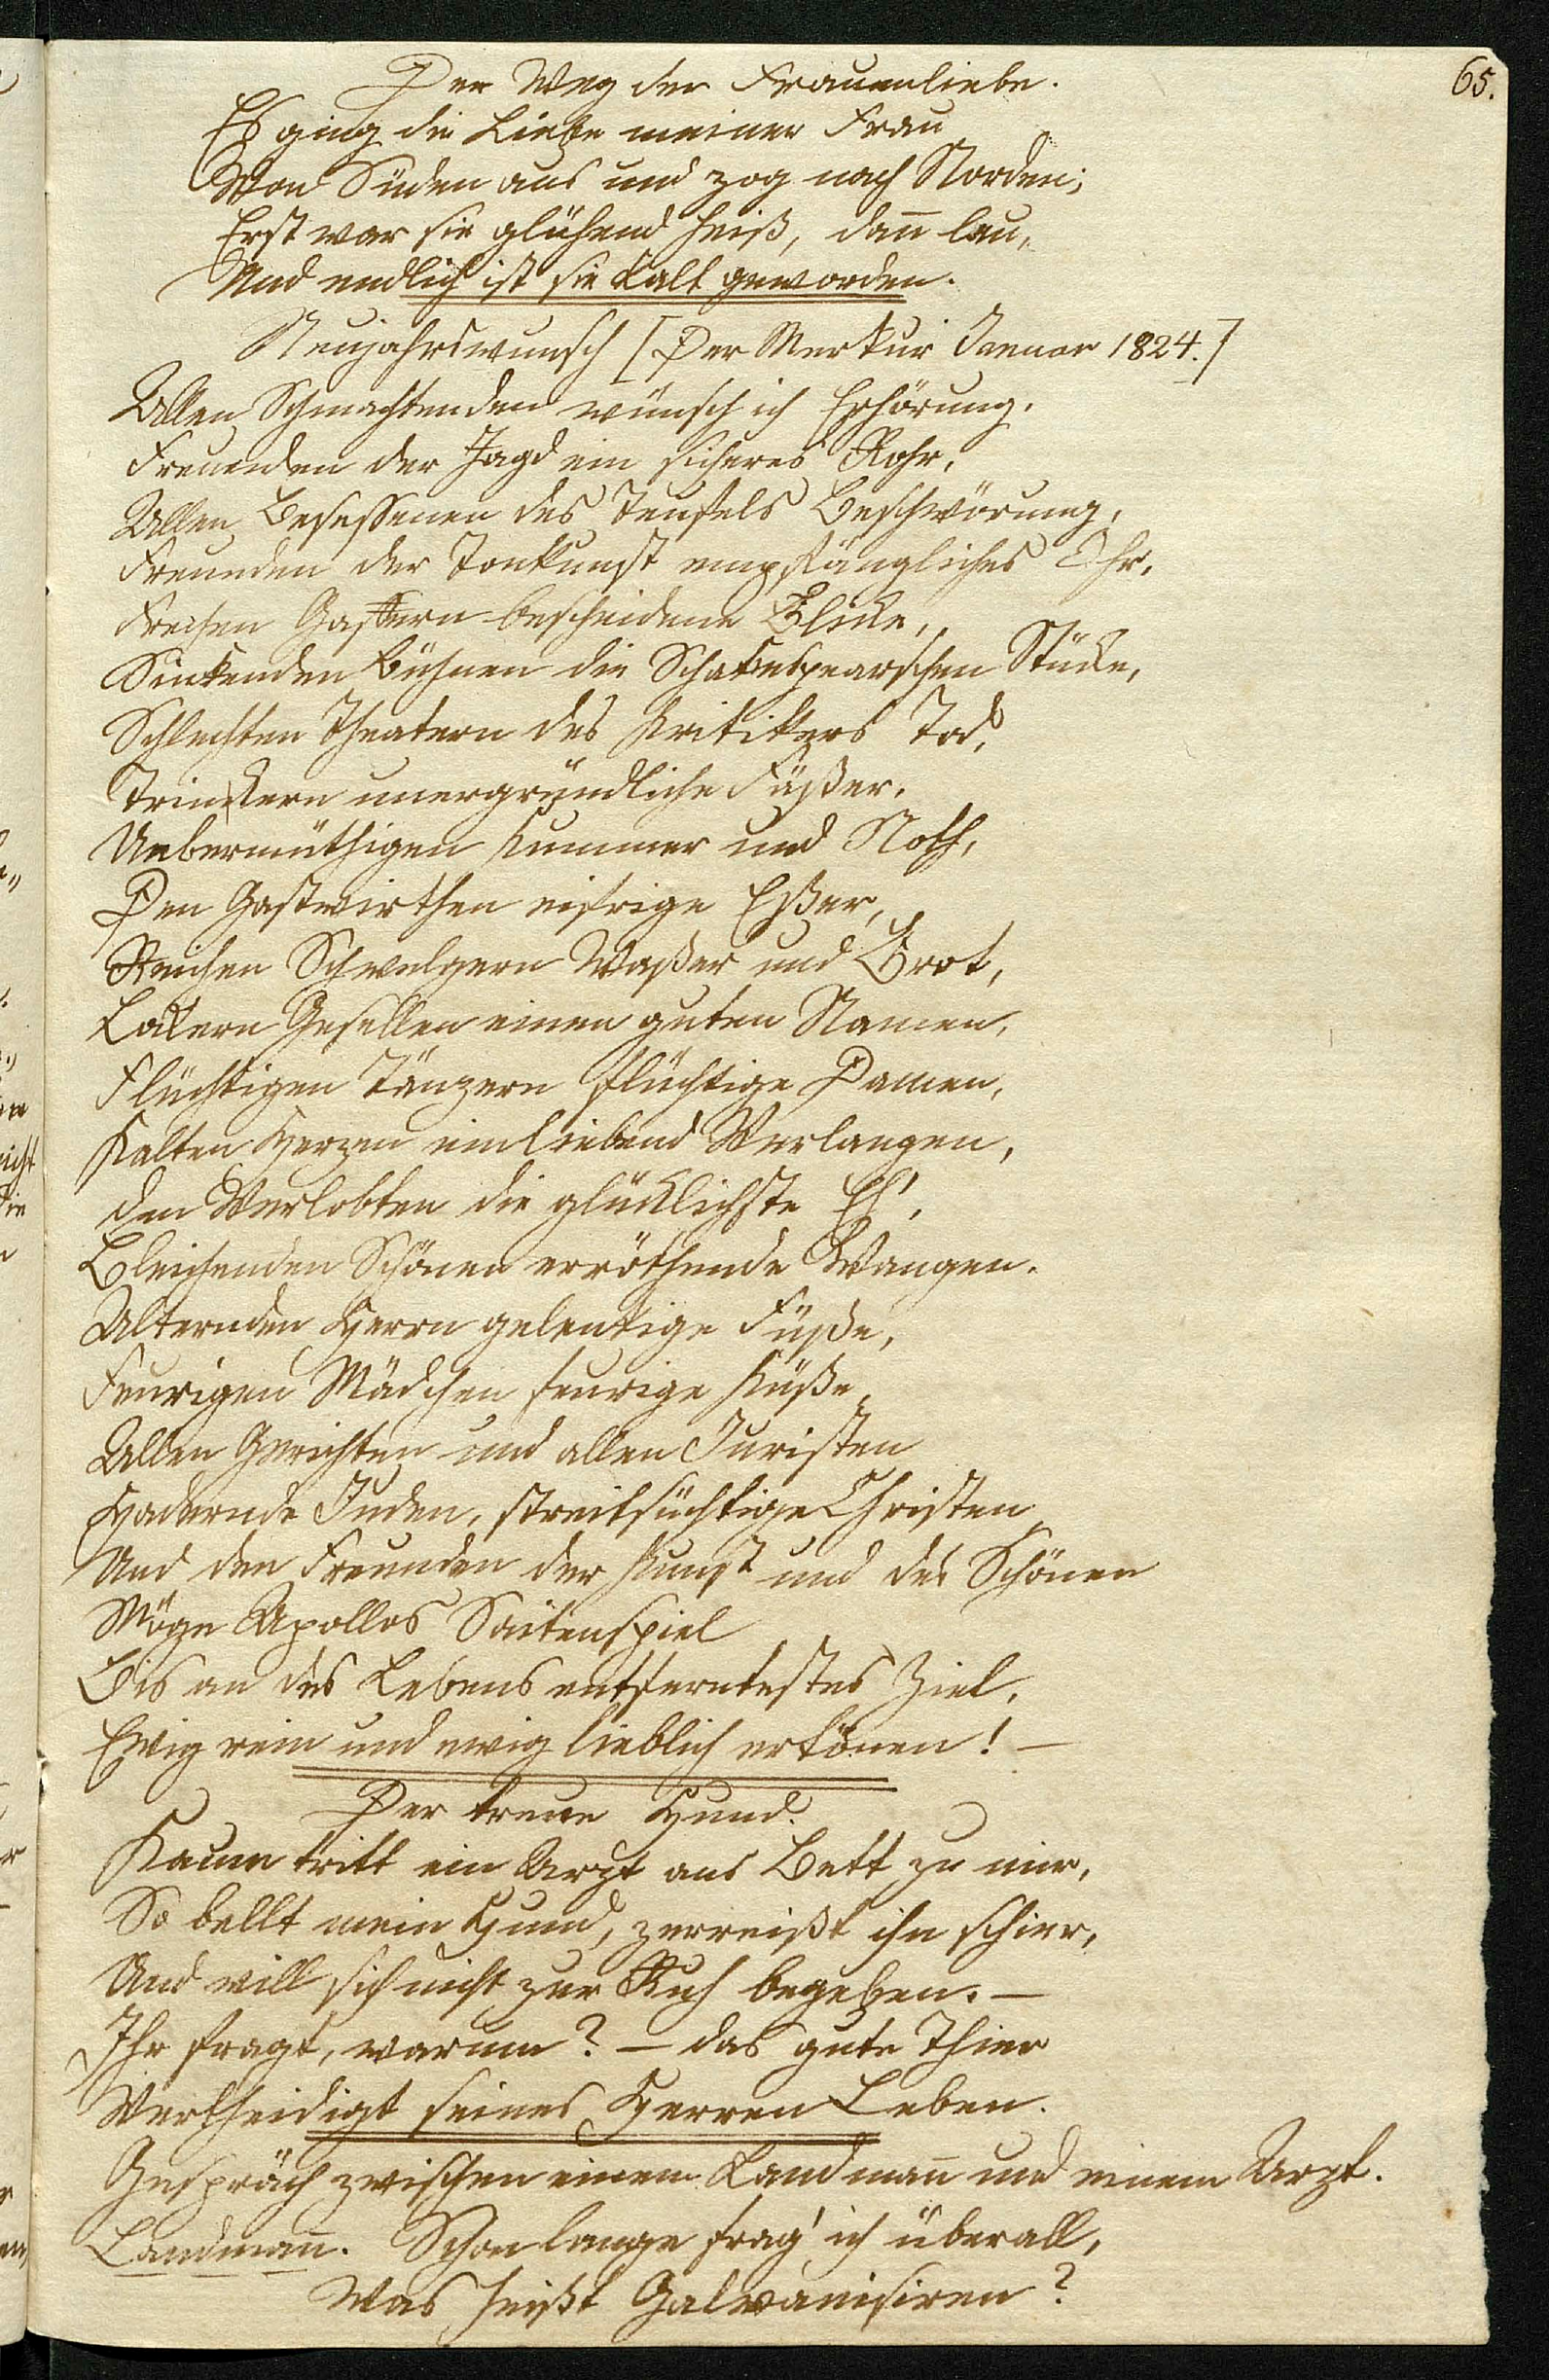 65.
Der Weg der Frauenliebe.
Es ging die Liebe meiner Frau
Von Süden aus und zog nach Norden;
Erst war sie glühend heiß, dañ lau,
Und endlich ist sie kalt geworden.
Neujahrswunsch [Der Merkur Januar 1824.]
Allen Schmachtenden wünsch ich Erhörung,
Freunden der Jagd ein sicheres Rohr,
Allen Besessenen des Teufels Beschwörung,
Freunden der Tonkunst empfängliches Ohr,
Frechen Gaffern bescheidene Blicke,
Sinkenden Bühnen die Schakespearschen Stücke,
Schlechten Theatern des Kritikers Tod,
Trinkern unergründliche Fäßer,
Uebermüthigen Kummer und Noth,
Den Gastwirthen eifrige Eßer,
Reichen Schwelgern Waßer und Brot,
Lockern Gesellen einen guten Namen,
Flüchtigen Tänzern flüchtige Damen,
Kalten Herzen ein liebend Verlangen,
den Verlobten die glücklichste Eh',
Bleichenden Schönen erröthende Wangen.
Alternden Herrn gelenkige Füße,
Feurigen Mädchen feurige Küße,
Allen Gerichten und allen Juristen
Hadernde Juden, streitsüchtige Christen
Und den Freunden der Kunst und des Schönen
Möge Apollos Saitenspiel
Bis an des Lebens entferntestes Ziel,
Ewig rein und ewig lieblich ertönen! —
Der treue Hund.
Kaum tritt ein Arzt ans Bett zu mir,
So bellt mein Hund, zerreißt ihn schier,
Und will sich nicht zur Ruh begeben. —
Ihr fragt, warum? — das gute Thier
Vertheidigt seines Herren Leben.
Gespräch zwischen einem Landmañ und einem Arzt.
Landmañ. Schon lange frag' ich überall,
Was heißt Galvanisiren?